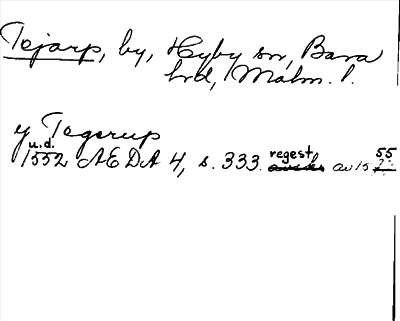 Tejarp, by, Hyby sn, Bara
hrd, Malm. l.
y Tegerup
u.d.
1552 AEDA 4, s. 333. regest av 1555